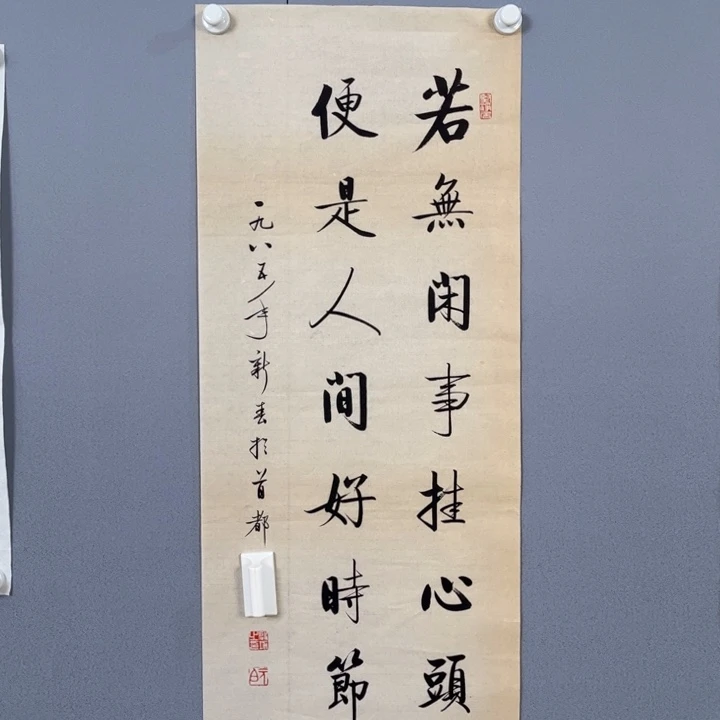 若無閑事挂心頭
便是人間好時節
一九八五年新春於首都